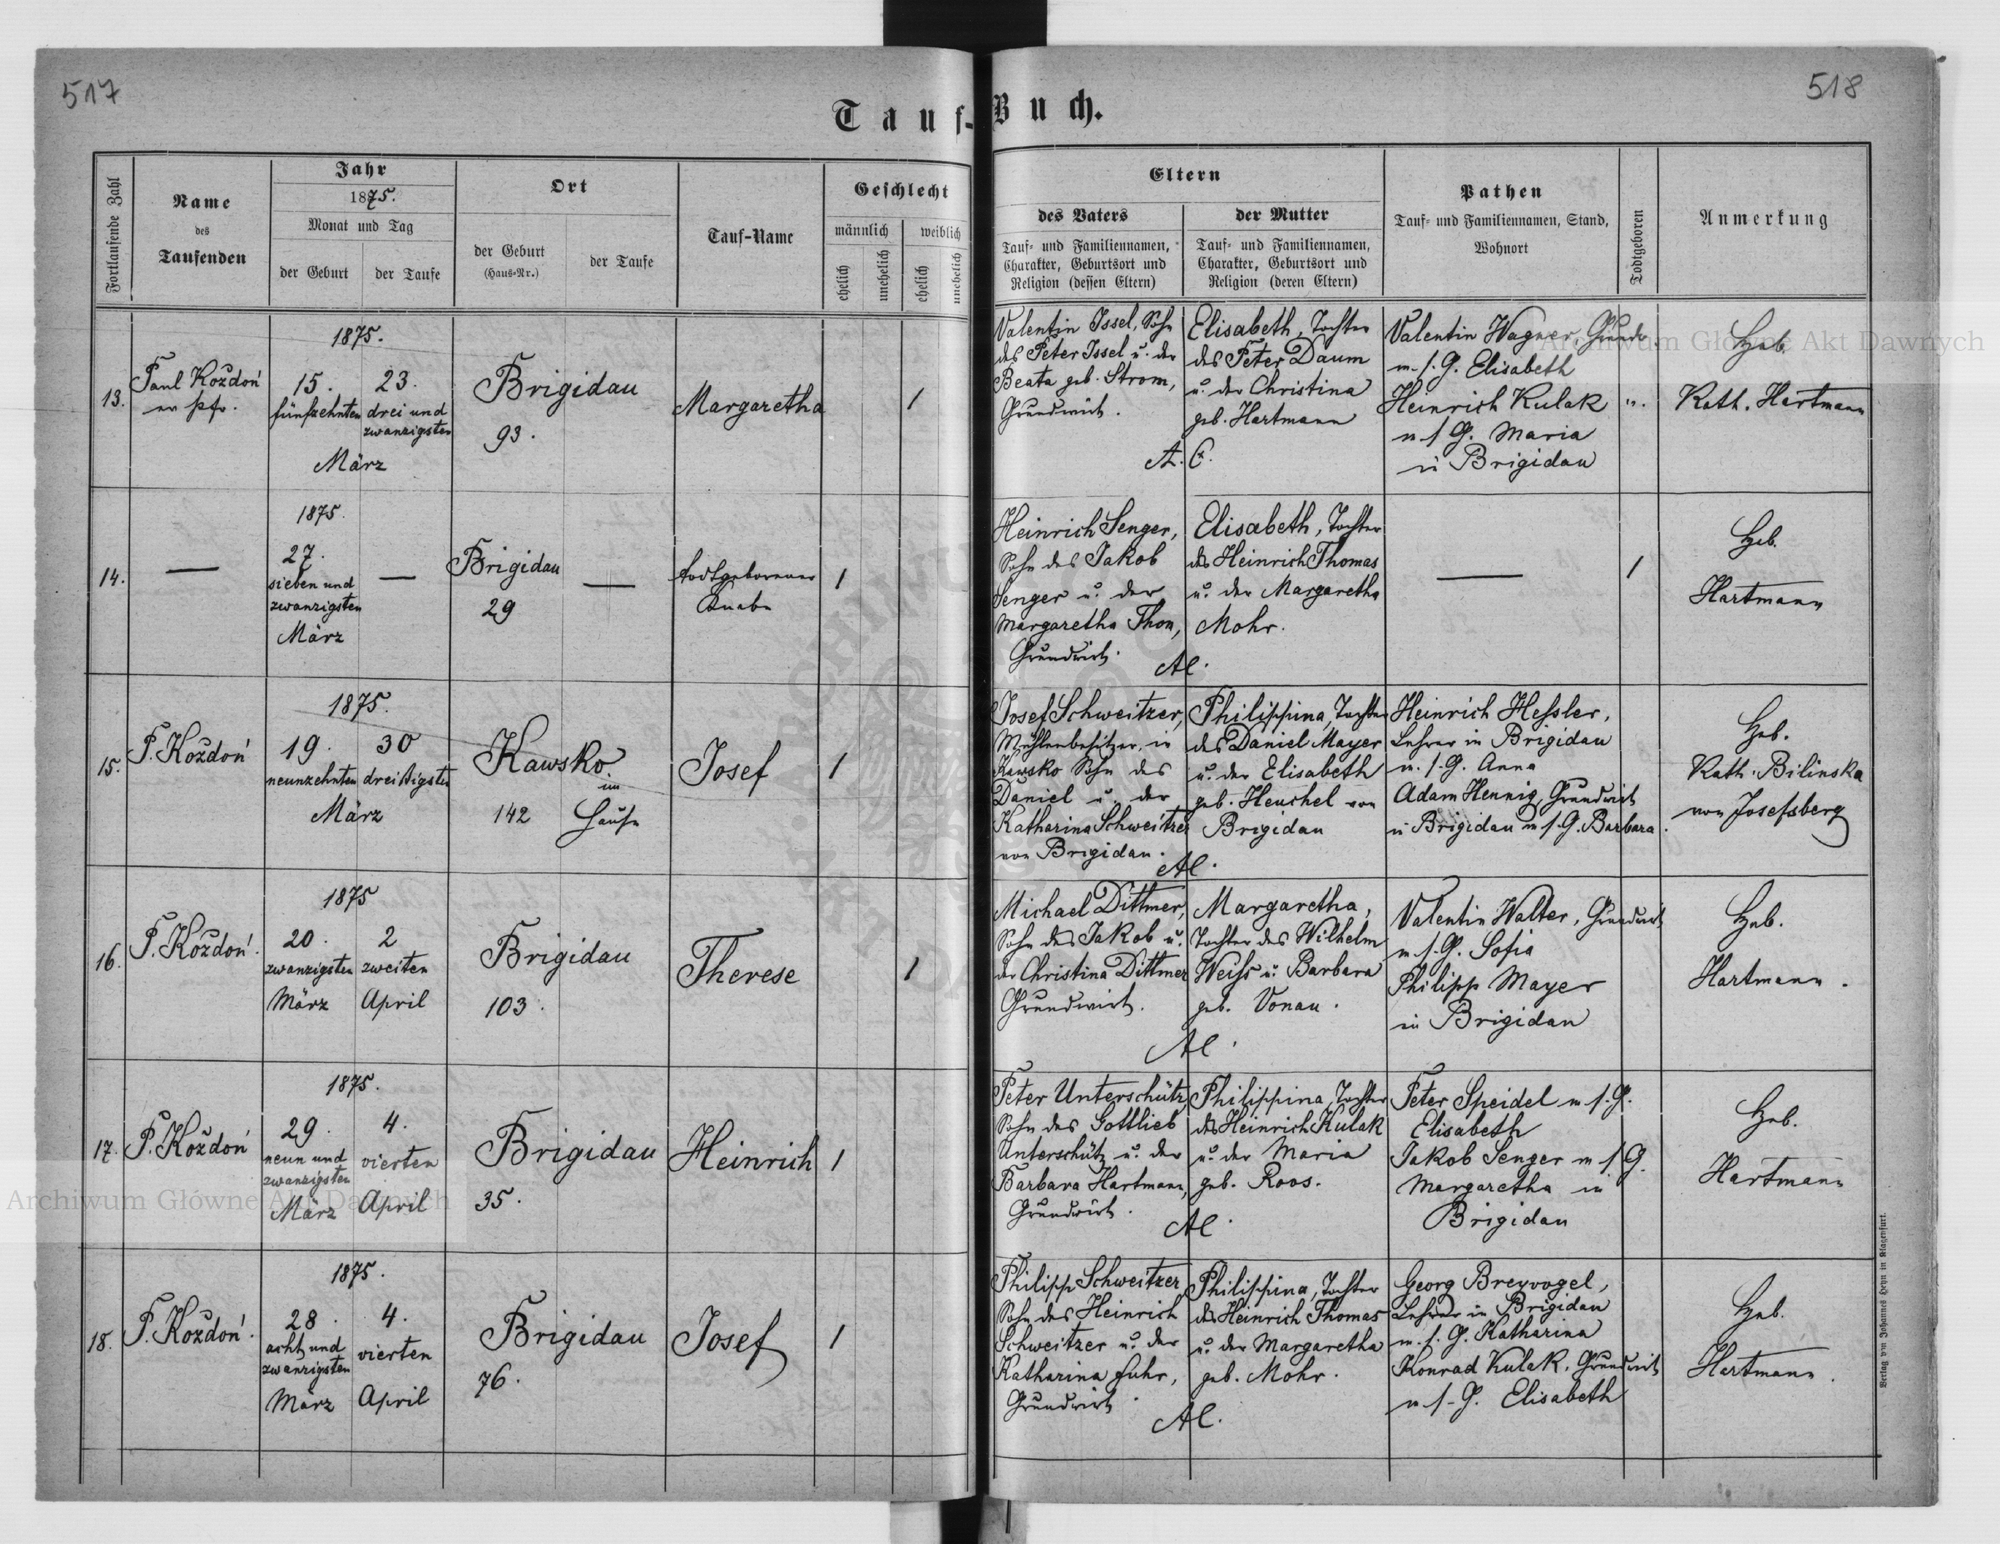 517
518
Tauf-Buch.
Fortlaufende Zahl
Name
des
Taufenden
Jahr
1875.
Monat und Tag
der Geburt
der Taufe
Ort
der Geburt
(Haus-Nr.)
der Taufe
Tauf-Name
Geschlecht
männlich
weiblich
ehelich
unehelich
ehelich
unehelich
Eltern
des Vaters
Tauf- und Familiennamen,
Charakter, Geburtsort und
Religion (dessen Eltern)
der Mutter
Tauf- und Familiennamen,
Charakter, Geburtsort und
Religion (deren Eltern)
Pathen
Tauf- und Familiennamen, Stand,
Wohnort
Todtgeboren
Anmerkung
13.
Paul Kożdoń
ev. pfr.
1875.
15.
fünfzehnten
23.
drei und
zwanzigsten
März
Brigidau
93.
Margaretha
1
Valentin Issel, Sohn
des Peter Issel u. der
Beata geb. Strom,
Grundwirt.
Elisabeth, Tochter
des Peter Daum
u. der Christina
geb. Hartmann
A. C.
Valentin Wagner, Grundw.
m. s. G. Elisabeth
Heinrich Kulak
m. s. G. Maria
in Brigidau
Heb.
Kath. Hartmann
14.
—
1875.
27.
sieben und
zwanzigsten
März
—
Brigidau
29
—
todtgeborener
Knabe
1
Heinrich Senger,
Sohn des Jakob
Senger u. der
Margaretha Thom,
Grundwirt.
Elisabeth, Tochter
des Heinrich Thomas
u. der Margaretha
Mohr.
AC.
—
1
Heb.
Hartmann
15.
P. Kożdoń
1875.
19.
neunzehnten
30
dreißigsten
März
Kawsko.
142
im
Hause
Josef
1
Josef Schweitzer,
Mühlenbesitzer in
Kawsko Sohn des
Daniel u. der
Katharina Schweitzer
von Brigidau.
Philippina, Tochter
des Daniel Mayer
u. der Elisabeth
geb. Heuchel von
Brigidau
AC.
Heinrich Hessler,
Lehrer in Brigidau
m. s. G. Anna
Adam Hennig, Grundwirt
in Brigidau m s. G. Barbara.
Heb.
Kath. Bilinska
von Josefsberg
16.
P. Kożdoń.
1875
20.
zwanzigsten
März
2
zweiten
April
Brigidau
103.
Therese
1
Michael Dittmer,
Sohn des Jakob u.
der Christina Dittmer
Grundwirt.
Margaretha,
Tochter des Wilhelm
Weiss u. Barbara
geb. Vonau.
AC.
Valentin Walter, Grundwirt,
m. s. G. Sofia
Philipp Mayer
in Brigidau
Heb.
Hartmann.
17.
P. Kożdoń
1875.
29.
neun und
zwanzigsten
März
4.
vierten
April
Brigidau
35.
Heinrich
1
Peter Unterschütz
Sohn des Gottlieb
Unterschütz u. der
Barbara Hartmann,
Grundwirt.
Philippina, Tochter
des Heinrich Kulak
u. der Maria
geb. Roos.
AC.
Peter Speidel m s. G.
Elisabeth
Jakob Senger m s. G.
Margaretha in
Brigidau
Heb.
Hartmann
18.
P. Kożdoń.
1875.
28.
acht und
zwanzigsten
März
4.
vierten
April
Brigidau
76.
Josef
1
Philipp Schweitzer
Sohn des Heinrich
Schweitzer u. der
Katharina Fuhr,
Grundwirt.
Philippina, Tochter
des Heinrich Thomas
u. der Margaretha
geb. Mohr.
AC.
Georg Breyvogel,
Lehrer in Brigidau
m. s. G. Katharina
Konrad Kulak, Grundwirt
m s. G. Elisabeth
Heb.
Hartmann.
Verlag von Johannes Heyn in Klagenfurt.
Archiwum Główne Akt Dawnych
Archiwum Główne Akt Dawnych